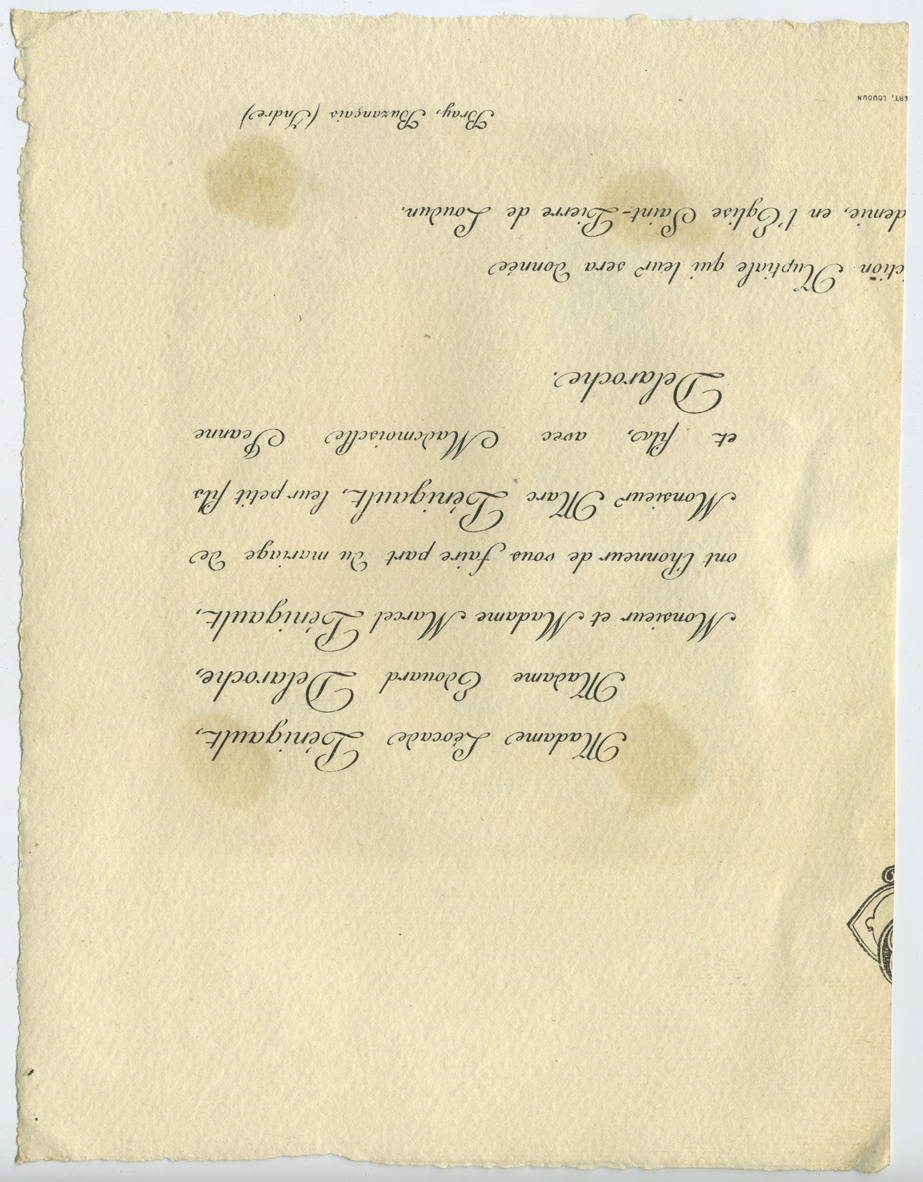 Madame Léocade Pénigault,
Madame Edouard Delaroche,
Monsieur et Madame Marcel Pénigault,
ont l'honneur de vous faire part du mariage de
Monsieur Marc Pénigault, leur petit fils
et fils, avec Mademoiselle Jeanne
Delaroche.
ction Nuptiale qui leur sera donnée
demie, en l'Eglise Saint-Pierre de Loudun.
Bray, Buzançais (Indre)
ERT, LOUDUN